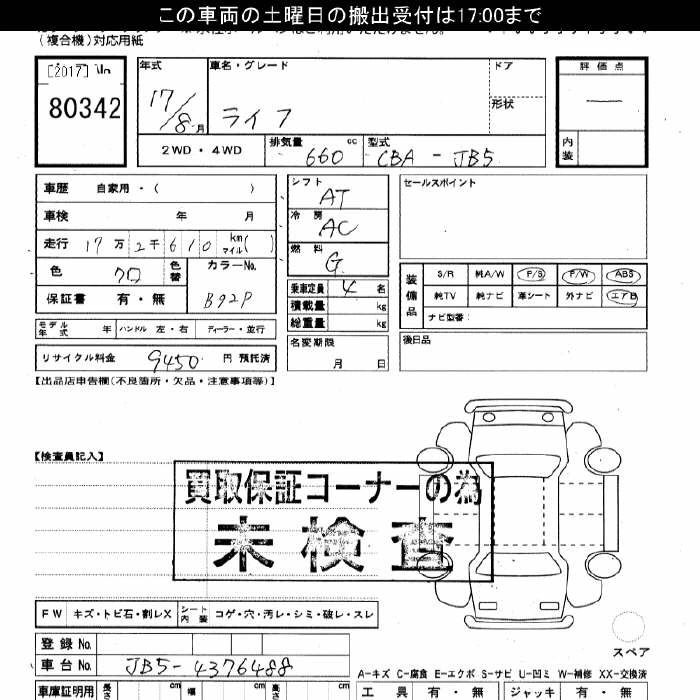 この車両の土曜日の搬出受付は17:00まで
(複合機)対応用紙
[2017]
80342
年式 車名・グレード ドア 評価点
17/8月 ライフ 形状
内装
2WD・4WD 排気量 660 cc 型式 CBA-JB5
車歴 自家用・( )
車検 年 月
走行 17万2千610 km マイル( )
色 クロ 色替 カラーNo. B92P
保証書 有・無
モデル年式 年 ハンドル 左・右 ディーラー・並行
リサイクル料金 9450 円 預託済
シフト AT
冷房 AC
燃料 G
乗車定員 4 名
積載量 kg
総重量 kg
名変期限 月 日
セールスポイント
装備品 S/R 純A/W P/S P/W ABS
純TV 純ナビ 革シート 外ナビ エアB
ナビ型番:
後日品
【出品店申告欄(不良箇所・欠品・注意事項等)】
【検査員記入】
買取保証コーナーの為
未検査
FW キズ・トビ石・割レX シート内装 コゲ・穴・汚レ・シミ・破レ・スレ
スペア
登録No.
車台No. JB5-4376488
A-キズ C-腐食 E-エクボ S-サビ U-凹ミ W-補修 XX-交換済
車庫証明用 長さ cm 幅 cm 高さ cm 工具 有・無 ジャッキ 有・無